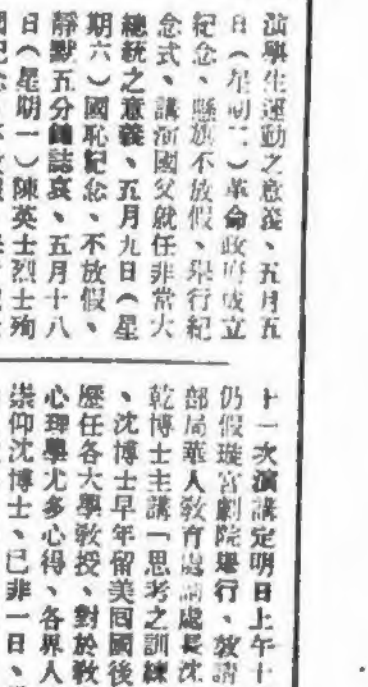 演學生運動之意義、五月五
日（星期二）革命政府成立
紀念、懸旗不放假、舉行紀
念式、講演國父就任非常大
總統之意義、五月九日（星
期六）國恥紀念、不放假、
靜默五分鐘誌哀、五月十八
日（星期一）陳英士烈士殉
十一次演講定明日上午十
仍假璇宮劇院舉行、放請
部局華人敎育處處長沈
乾博士主講「思考之訓練
、沈博士早年留美囘國後
歷任各大學敎授、對於敎
心理學尤多心得、各界人
崇仰沈博士、已非一日、